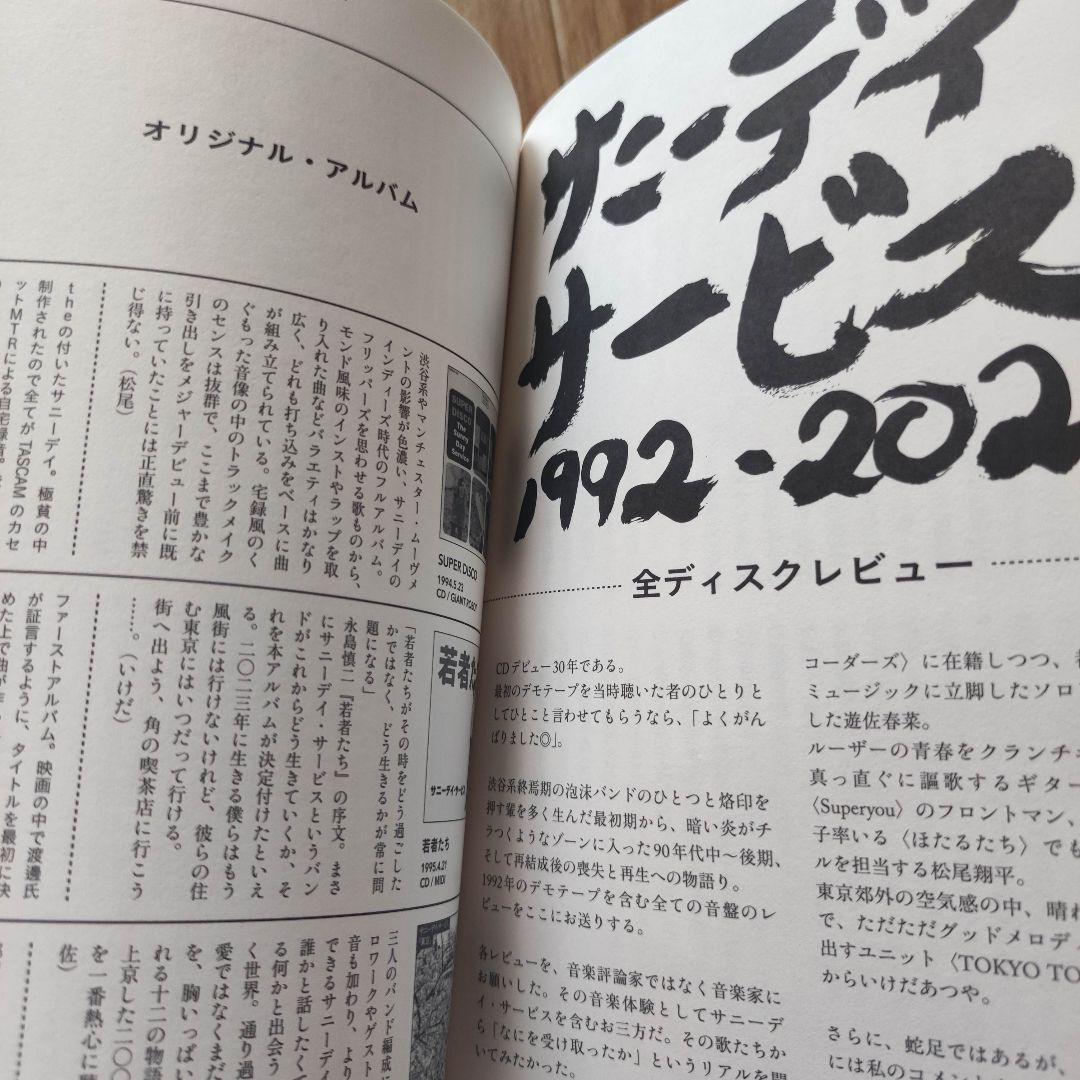 オリジナル・アルバム
渋谷系やマンチェスター・ムーヴメ
ントの影響が色濃い、サニーデイの
インディーズ時代のフルアルバム。
フリッパーズを思わせる歌ものから、
モンド風味のインストやラップを取
り入れた曲などバラエティはかなり
広く、どれも打ち込みをベースに曲
が組み立てられている。宅録風のく
ぐもった音像の中のトラックメイク
のセンスは抜群で、ここまで豊かな
引き出しをメジャーデビュー前に既
に持っていたことには正直驚きを禁
じ得ない。（松尾）
theの付いたサニーデイ。極貧の中
制作されたので全てがTASCAMのカセ
ットMTRによる自宅録音。
SUPER DISCO
The Sunny Day Service
SUPER DISCO
1994.5.23
CD / GIANT ROBOT
「若者たちがその時をどう過ごした
かではなく、どう生きるかが常に問
題になる」
永島慎二『若者たち』の序文。まさ
にサニーデイ・サービスというバン
ドがこれからどう生きていくか、そ
れを本アルバムが決定付けたといえ
る。二〇二三年に生きる僕らはもう
風街には行けないけれど、彼らの住
む東京にはいつだって行ける。
街へ出よう、角の喫茶店に行こう
……。（いけだ）
ファーストアルバム。映画の中で渡邊氏
が証言するように、タイトルを最初に決
若者た
サニーデイ・サービス
若者たち
1995.4.21
CD / MIDI
三人のバンド編成に
ロワークやゲスト
音も加わり、より
できるサニーデイ
誰かと話したくて
る何かと出会う
く世界。通り過
愛ではなくまだ
を、胸いっぱい
れる十二の物語
上京した二〇〇
を一番熱心に聴
佐）
サニーデイ
サービス
1992-202
全ディスクレビュー
CDデビュー30年である。
最初のデモテープを当時聴いた者のひとりと
してひとこと言わせてもらうなら、「よくがん
ばりました◎」。
渋谷系終焉期の泡沫バンドのひとつと烙印を
押す輩を多く生んだ最初期から、暗い炎がチ
ラつくようなゾーンに入った90年代中〜後期、
そして再結成後の喪失と再生への物語り。
1992年のデモテープを含む全ての音盤のレ
ビューをここにお送りする。
各レビューを、音楽評論家ではなく音楽家に
お願いした。その音楽体験としてサニーデ
イ・サービスを含むお三方だ。その歌たちか
ら「なにを受け取ったか」というリアルを聞
いてみたかった。
コーダーズ〉に在籍しつつ、
ミュージックに立脚したソロ
した遊佐春菜。
ルーザーの青春をクランチ
真っ直ぐに謳歌するギター
〈Superyou〉のフロントマン、
子率いる〈ほたるたち〉でも
ルを担当する松尾翔平。
東京郊外の空気感の中、晴れ
で、ただただグッドメロデ
出すユニット〈TOKYO TO
からいけだあつや。
さらに、蛇足ではあるが、
には私のコメン